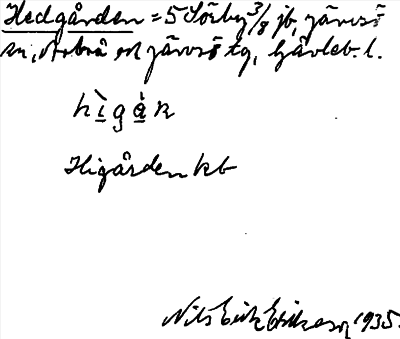 Hedgården = 5 Sörby 3/8 jb, Järvsö
sn, Arbrå och Järvsö tg, Gävleb. l.
higån
Higården kb
Nils Erik Eriksson 1935.